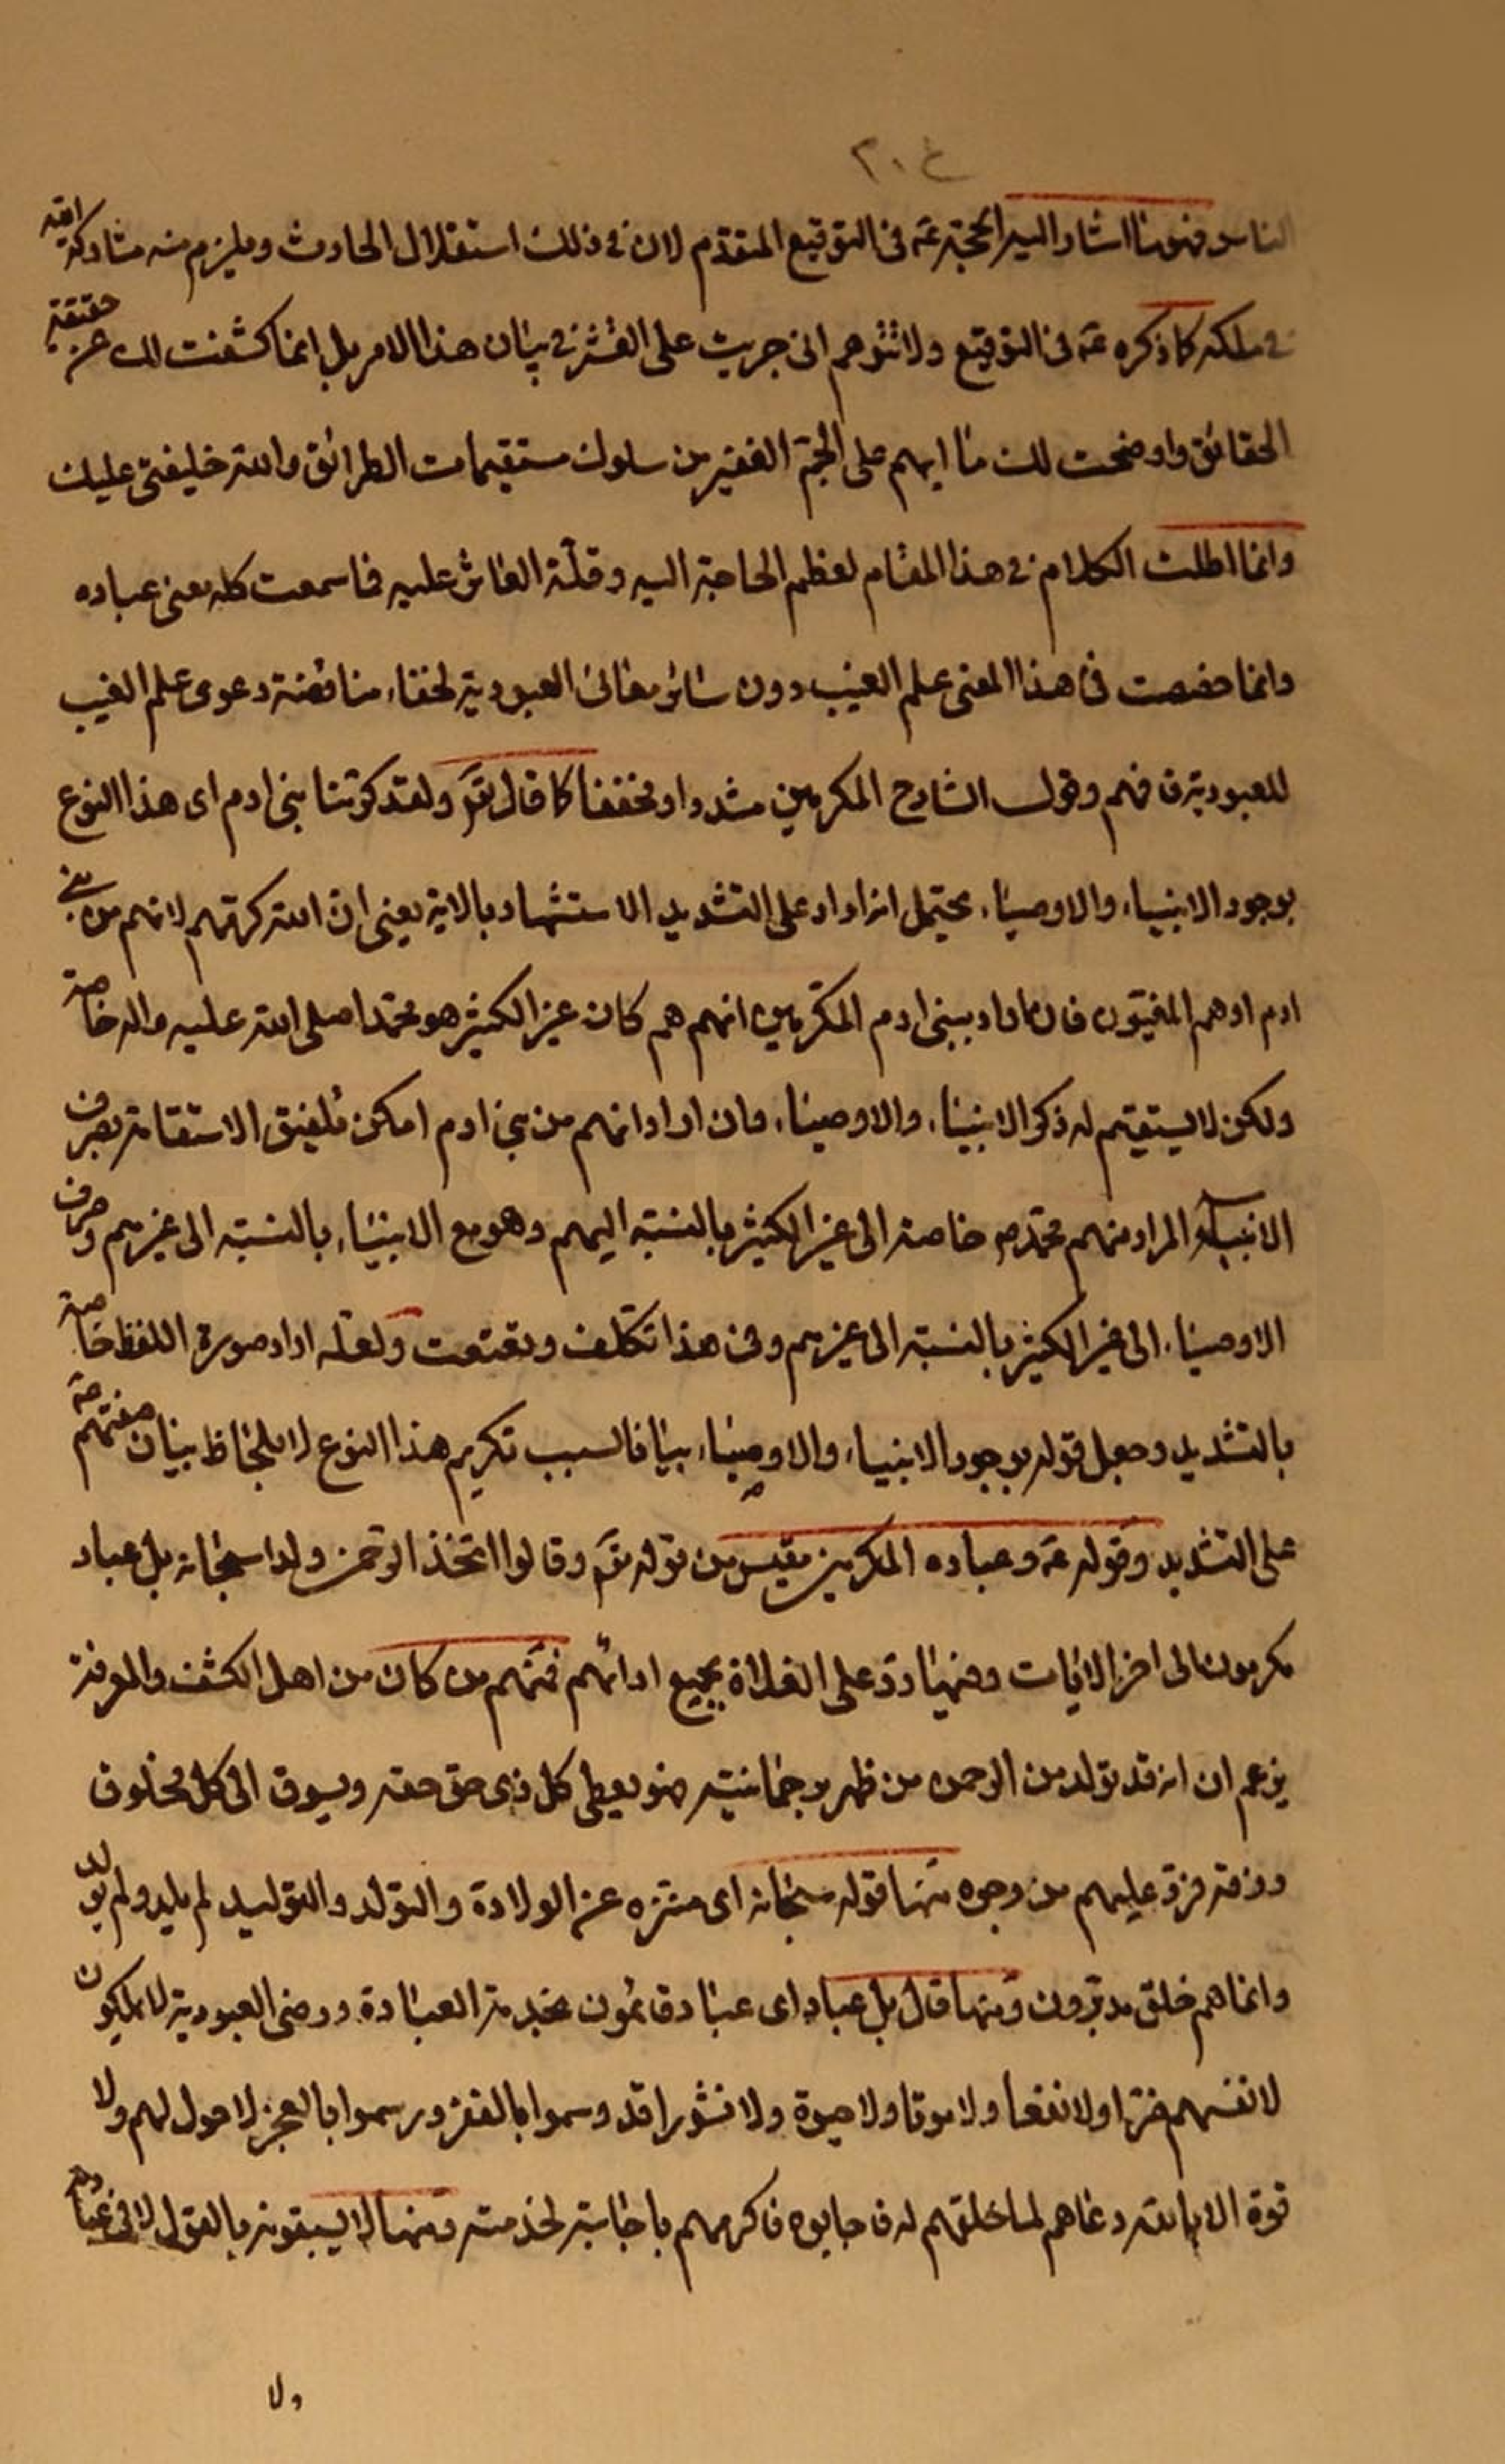 ٢٠٤
الناس فهو ما اشار اليه الحجة عَم فى التوقيع المتقدم لان فى ذلك استقلال الحادث ويلزم منه مشاركة الله
فى ملكه كما ذكره عَم فى التوقيع ولا تتوهم انى جريت على القشر فى بيان هذا الامر بل انما كشفت لك عن حقيقة
الحقائق واوضحت لك ما ابهم على الجم الغفير من سلوك مستقيمات الطرائق والله خليفتى عليك
وانما اطلت الكلام فى هذا المقام لعظم الحاجة اليه وقلّة العاثر عليه فما سمعت كله معنى عباده
وانما خصصت فى هذا المعنى علم الغيب دون سائر معانى العبودية لخفاء مناقضة دعوى علم الغيب
للعبودية فافهم وقول الشارح المكرمين مشددا ومخففا كما قال تعَ ولقد كرّمنا بنى ادم اى هذا النوع
بوجود الانبياء والاوصياء يحتمل انه اراد على التشديد الاستشهاد بالاية يعنى ان الله كرمهم لانهم من بنى
ادم او هم المعنيّون فان اراد ببنى ادم المكرّمين انهم هم كان عن الكثير هو محمدا صلى الله عليه واله خاصة
ولكن لا يستقيم له ذكر الانبياء والاوصياء وان اراد انهم من بنى ادم امكن تلفيق الاستقامة بصرف
الانبياء والمراد منهم محمد ص خاصة الى غير الكثير بالنسبة اليهم وهو مع الانبياء بالنسبة الى غيرهم وصرف
الاوصياء الى غير الكثير بالنسبة الى غيرهم وفى هذا تكلف وتعنت ولعله اراد صورة اللفظ خاصة
بالتشديد وجعل قوله بوجود الانبياء والاوصياء بيانا لسبب تكريم هذا النوع لا بلحاظ بيان صفتهم
على التشديد وقوله عَم وعباده المكرمين مقتبس من قوله تعَ وقالوا اتخذ الرحمن ولدا سبحانه بل عباد
مكرمون الى اخر الايات وفيها ردّ على الغلاة بجميع ارائهم فمنهم من كان من اهل الكشف والمعرفة
يزعم ان انه قد تولد من الرحمن من ظهر برحمانيته فهو يعطى كل ذى حق حقه ويسوق الى كل مخلوق
رزقه فردّ عليهم من وجوه منها قوله سبحانه اى منزه عن الولادة والتولد والتوليد لم يلد ولم يولد
وانما هم خلق مدبّرون ومنها قال بل عباد اى عباد قائمون بخدمة العبادة ورضى العبودية لا يملكون
لانفسهم ضرّا ولا نفعا ولا موتا ولا حيوة ولا نشورا قد وسموا بالفقر ورسموا بالعجز لا حول لهم ولا
قوة الا بالله دعاهم لما خلقهم له فاجابوه فاكرمهم باجابته لخدمته ومنها لا يسبقونه بالقول لا فى عبادة
ولا